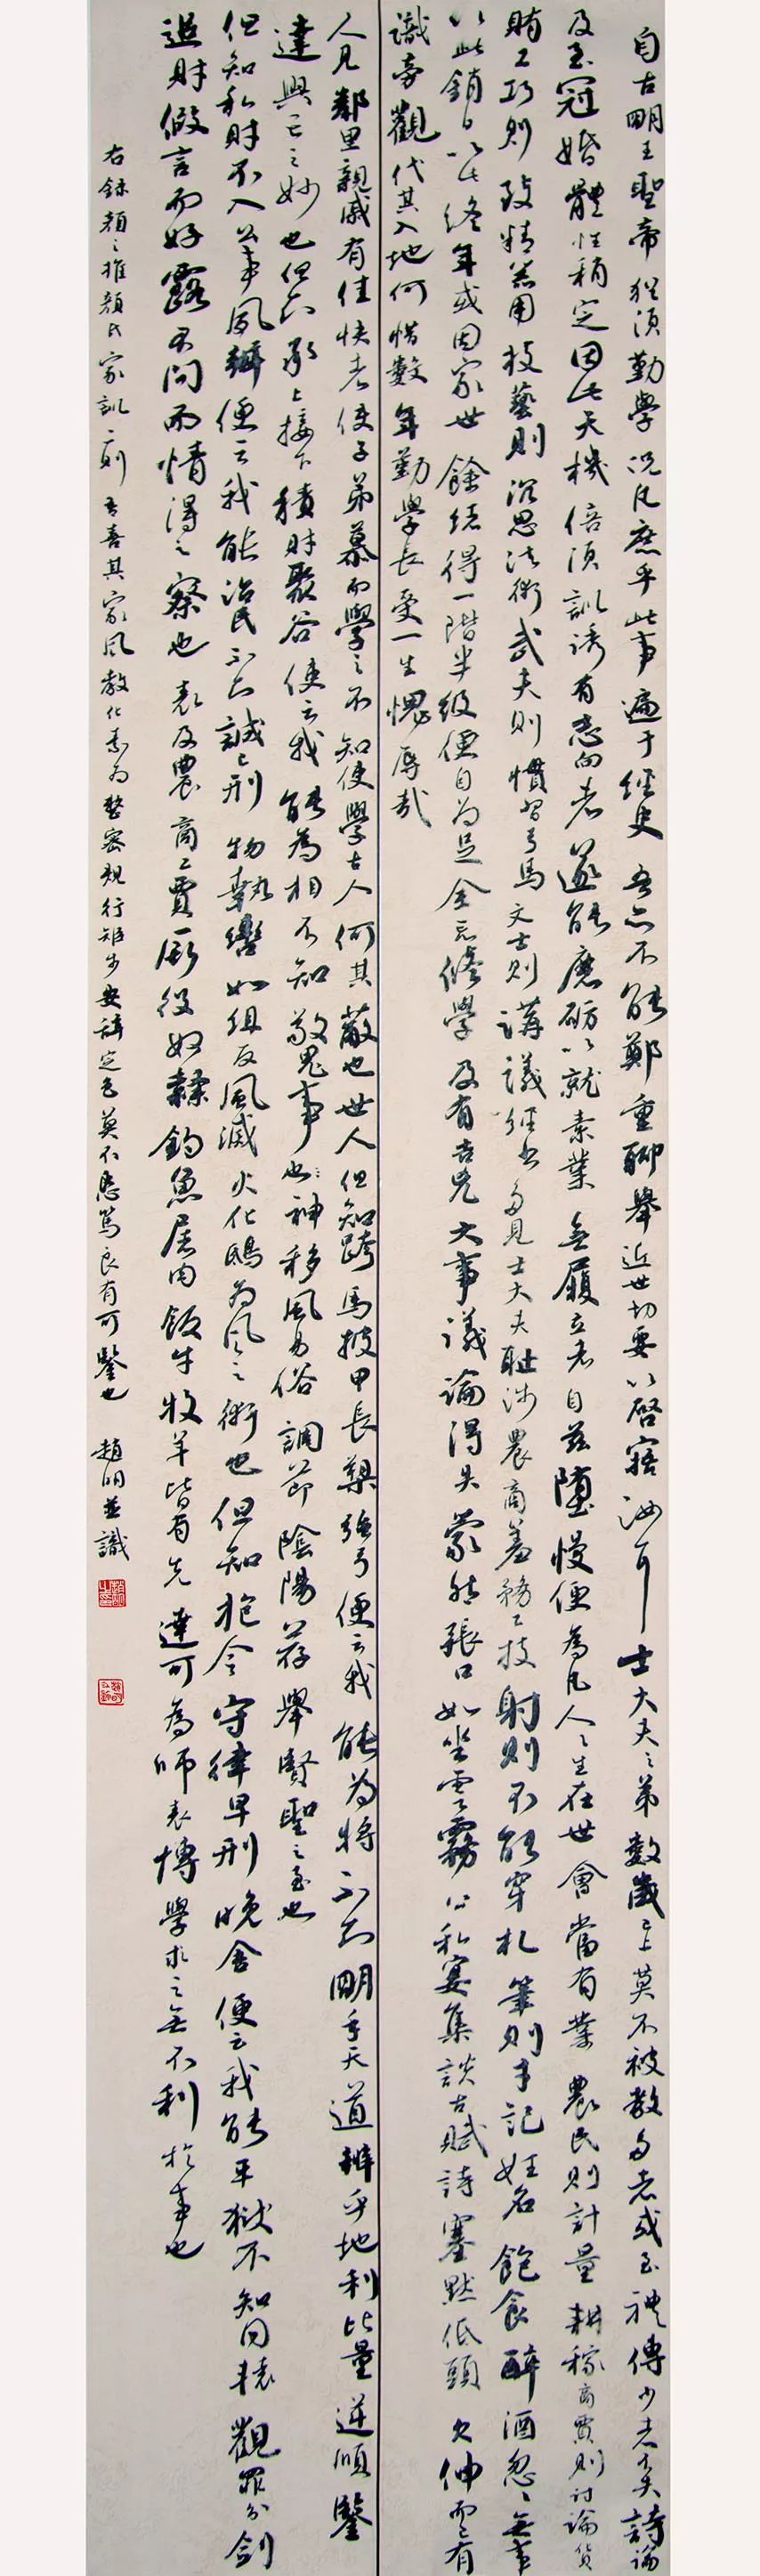 自古明王聖帝猶須勤學況凡庶乎此事遍于經史吾亦不能鄭重聊舉近世切要以啓寤汝耳士大夫之弟數歲已上莫不被教多者或至禮傳少者不失詩論
及至冠婚體性稍定因此天機倍須訓誘有志向者遂能磨礪以就素業無履立者自茲墮慢便為凡人人生在世會當有業農民則計量耕稼商賈則討論貨
賄工巧則致精器用技藝則沉思法術武夫則慣習弓馬文士則講議經書多見士大夫恥涉農商羞務工技射則不能穿札筆則才記姓名飽食醉酒忽忽無事
以此銷日以此終年或因家世餘緒得一階半級便自為足全忘修學及有吉凶大事議論得失蒙然張口如坐雲霧公私宴集談古賦詩塞默低頭欠伸而已有
識旁觀代其入地何惜數年勤學長受一生愧辱哉
人見鄰里親戚有佳快者使子弟慕而學之不知使學古人何其蔽也世人但知跨馬披甲長槊強弓便云我能為將不知明乎天道辨乎地利比量逆順鑒
達興亡之妙也但知承上接下積財聚谷便云我能為相不知敬鬼事神移風易俗調節陰陽荐舉賢聖之至也
但知私財不入公事夙辦便云我能治民不知誠己刑物執轡如組反風滅火化鴟為鳳之術也但知抱令守律早刑晚舍便云我能平獄不知同轅觀罪分劍
追財假言而好露不問而情得之察也爰及農商工賈廝役奴隸釣魚屠肉飯牛牧羊皆有先達可為師表博學求之無不利於事也
右錄顏之推顏氏家訓二則吾喜其家風教化素為整密規行矩步安辭定色莫不懇篤良有可鑒也 趙明並識